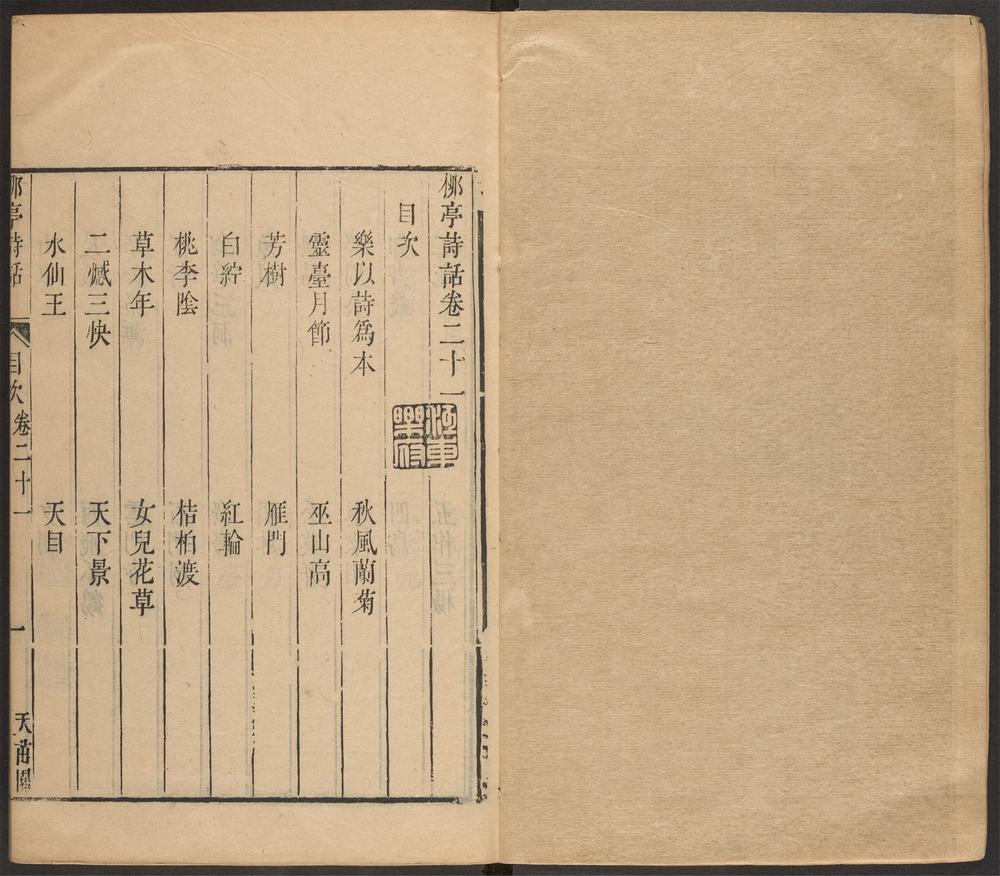 栁亭詩話卷二十一
目次
樂以詩爲本 秋風蘭菊
靈臺月節 巫山高
芳樹 雁門
白紵 紅輪
桃李陰 桔柏渡
草木年 女兒花草
二憾三快 天下景
水仙王 天目
栁亭詩話 目次卷二十一 一 天茁園